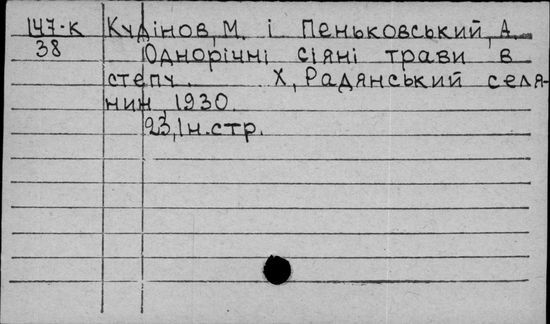 147-к Кудінов, М. і Пеньковський, А.
38 Однорічні сіяні трави в
степу. Х, Радянський селя-
нин, 1930.
23, 1 н. стр.